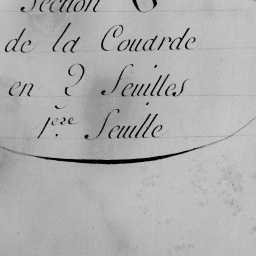 Section C
de la Couarde
en 2 feuilles
1ère feuille